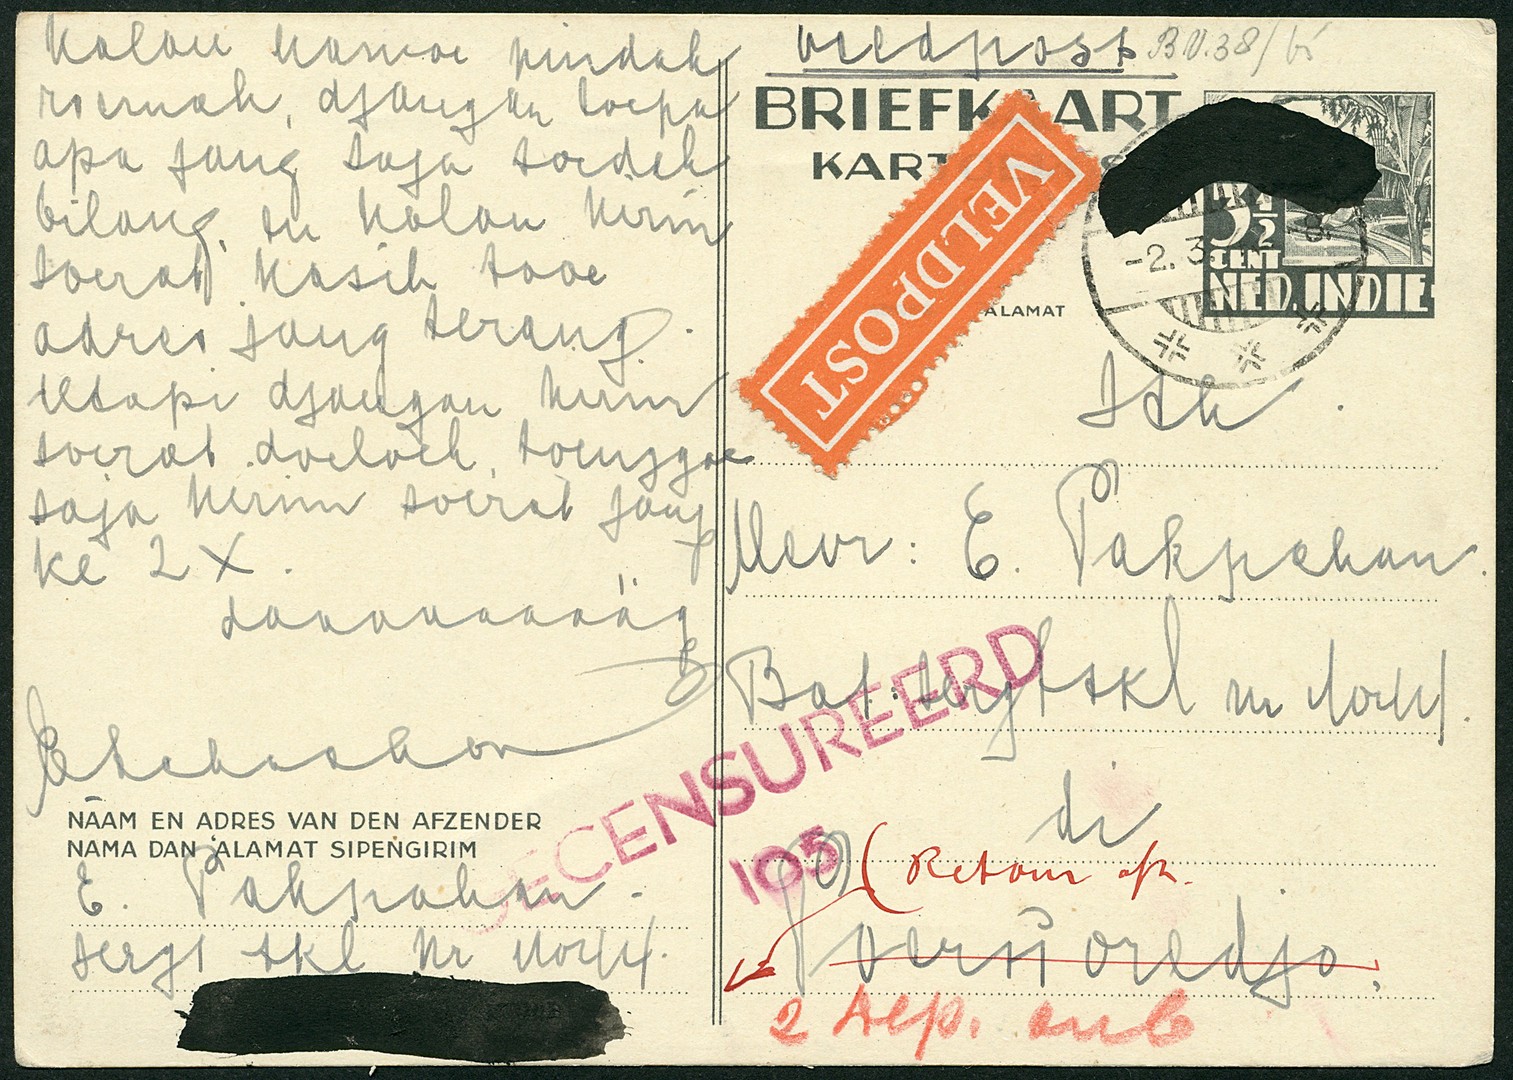 Kalau kamoe pindah
roemah, djangan loepa
apa jang saja soedah
bilang, en kalau kirim
soerat kasih taoe
adres jang terang.
tetapi djangan kirim
soerat doeloeh, toenggoe
saja kirim soerat jang
ke 2 X.
daaaaaaaäg
NAAM EN ADRES VAN DEN AFZENDER
NAMA DAN ALAMAT SIPENGIRIM
E. Pakpahan.
sergt skl Nr
Veldpost
B.V.38/
BRIEFKAART
KART
VELDPOST
ALAMAT
-2.3
3½
CENT
NED. INDIE
Mevr: E. Pakpahan.
Bat: sergt skl Nr
di
Poerworedjo.
GECENSUREERD
105
(Retour afz.
2 Dep. Bat